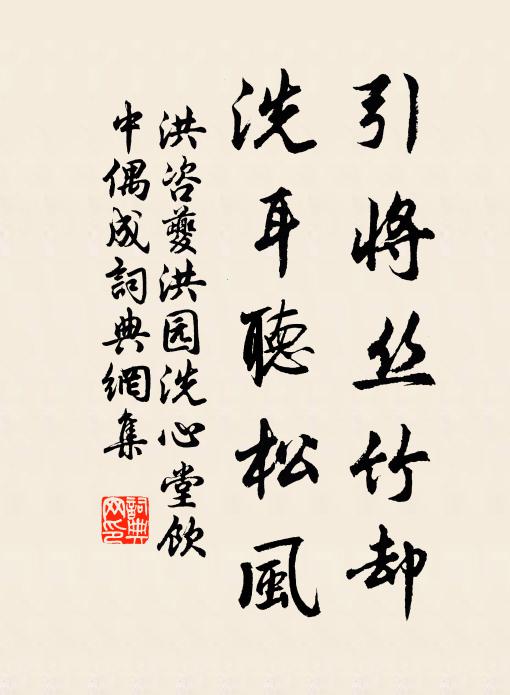 引将丝竹却
洗耳聴松風
洪咨夔洪园洗心堂飲
中偶成詞典網集
詞典
网印